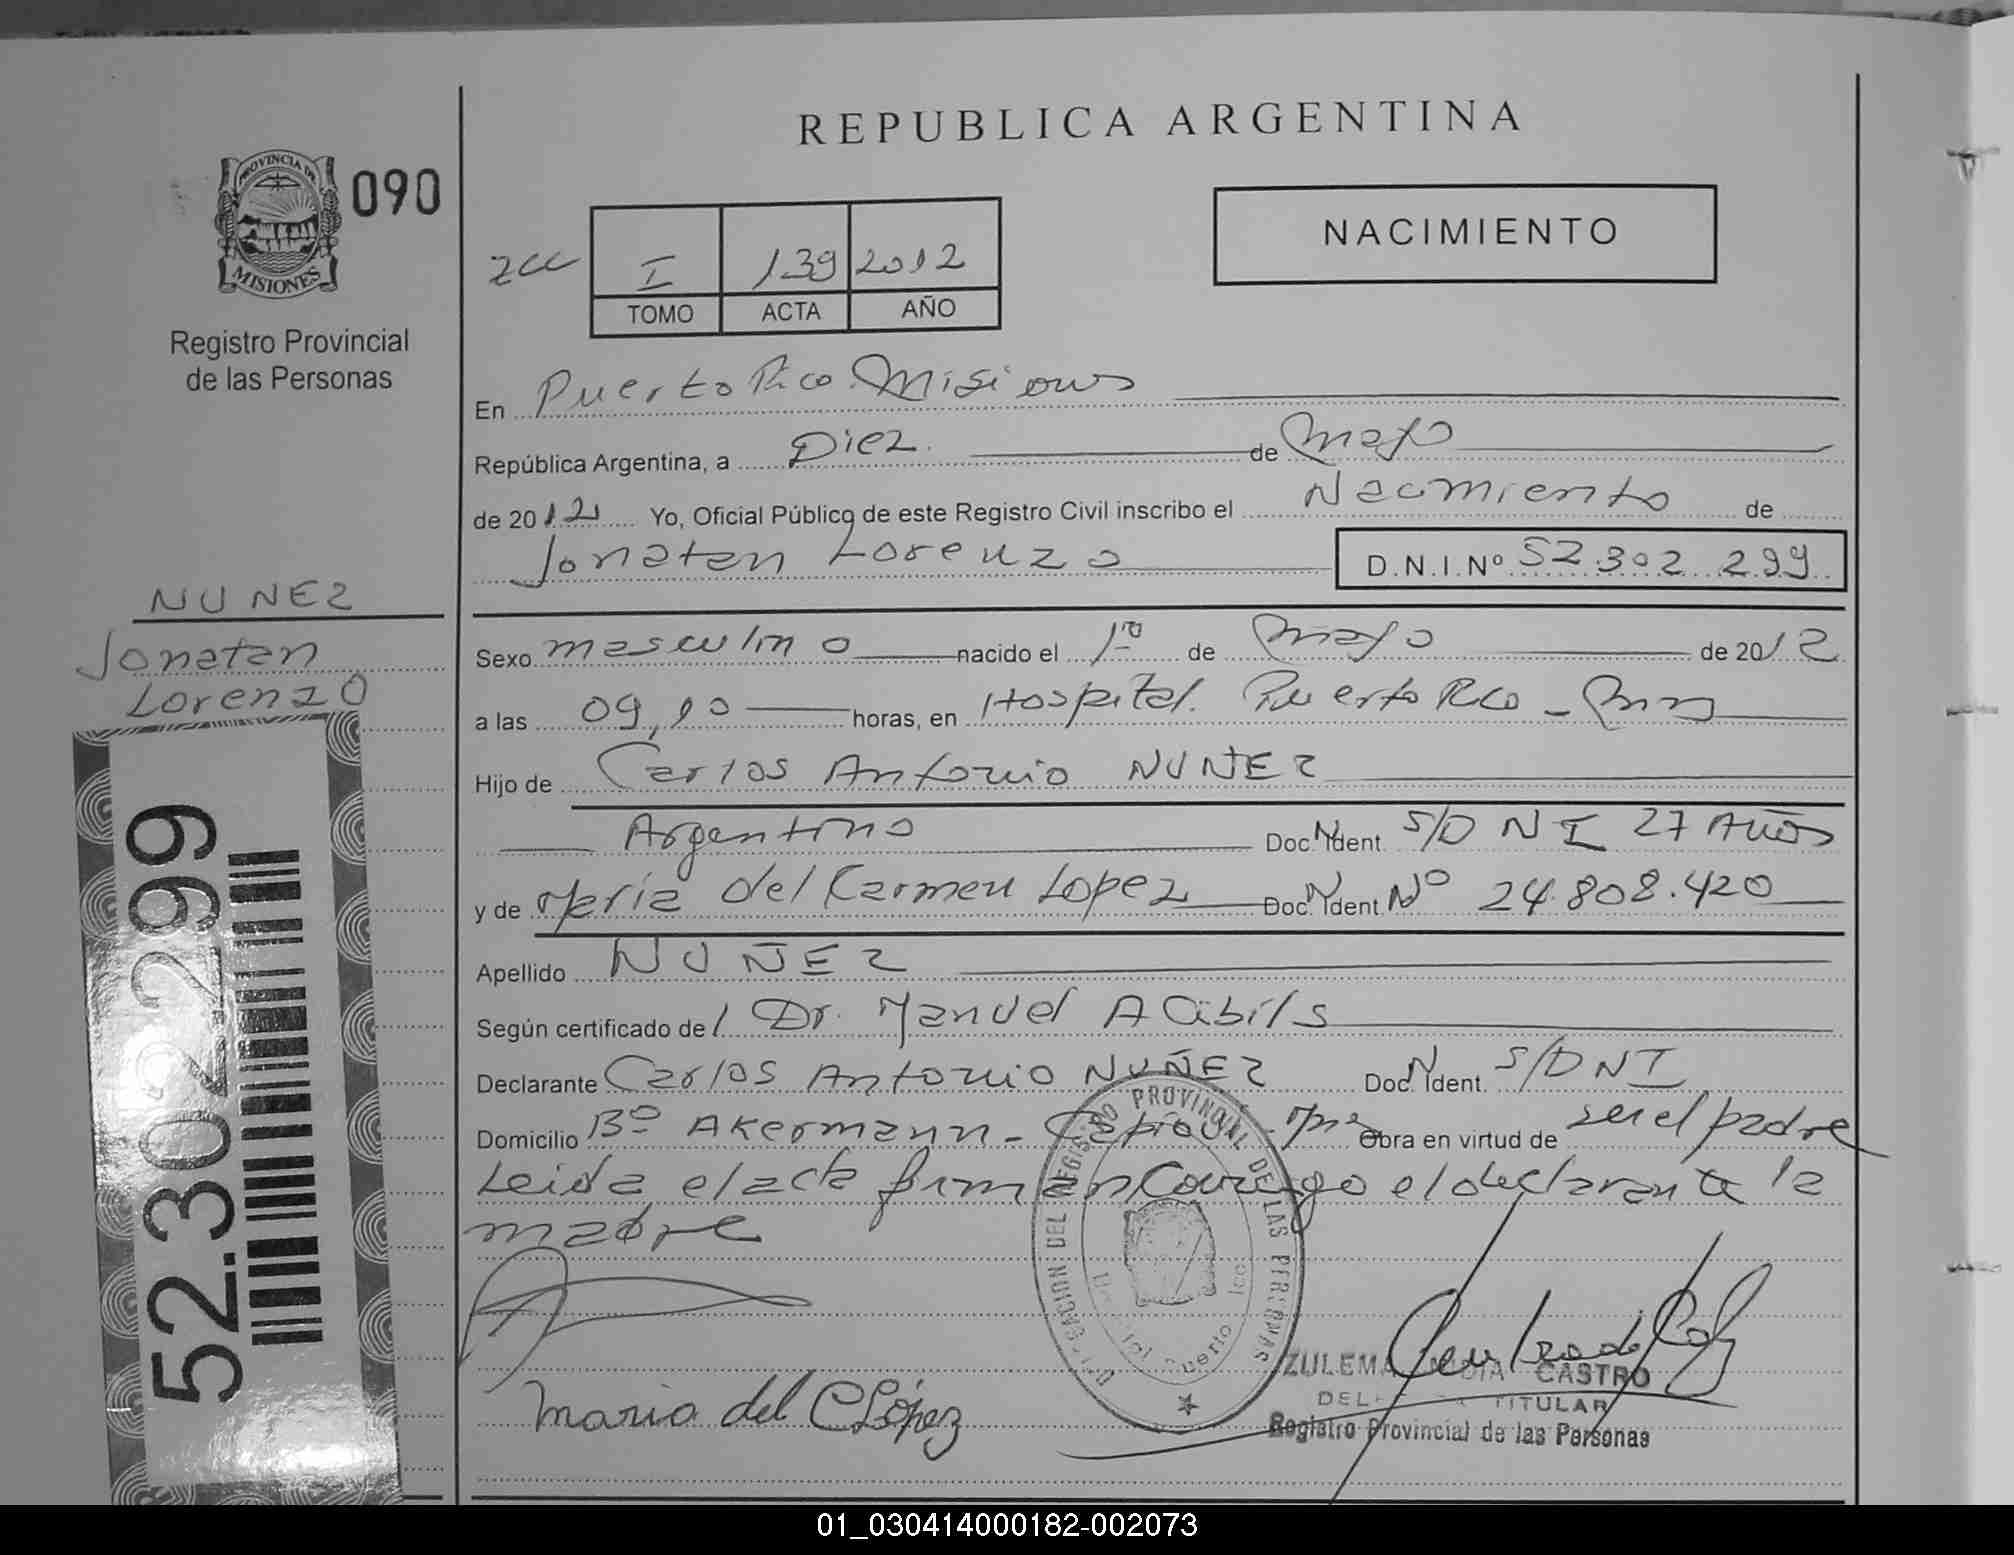 REPUBLICA ARGENTINA
PROVINCIA DE
MISIONES
090
Registro Provincial
de las Personas
NACIMIENTO
I 139 2012
TOMO ACTA AÑO
En Puerto Rico Misiones
República Argentina, a Diez de mayo
de 2012 Yo, Oficial Público de este Registro Civil inscribo el Nacimiento de
Jonatan Lorenzo D.N.I.Nº 52.302.299
NUNEZ
Jonatan
Lorenzo
Sexo masculino nacido el 1ro de mayo de 2012
a las 09,10 horas, en Hospital. Puerto Rico - Mns
Hijo de Carlos Antonio NUÑEZ
Argentino Doc. Ident. S/D N I 27 Años
y de Maria del Carmen Lopez Doc. Ident. Nº 24.808.420
Apellido NUÑEZ
Según certificado del Dr. Manuel A
Declarante Carlos Antonio NUÑEZ Doc. Ident. S/DNI
Domicilio Bº Akermann - Capiovi - Mns Obra en virtud de ser el padre
Leida el acta firman conmigo el declarante la
madre
52.302.299
DEL REGISTRO PROVINCIAL DE LAS PERSONAS
Maria del C López
ZULEMA CASTRO
TITULAR
Registro Provincial de las Personas
01_030414000182-002073